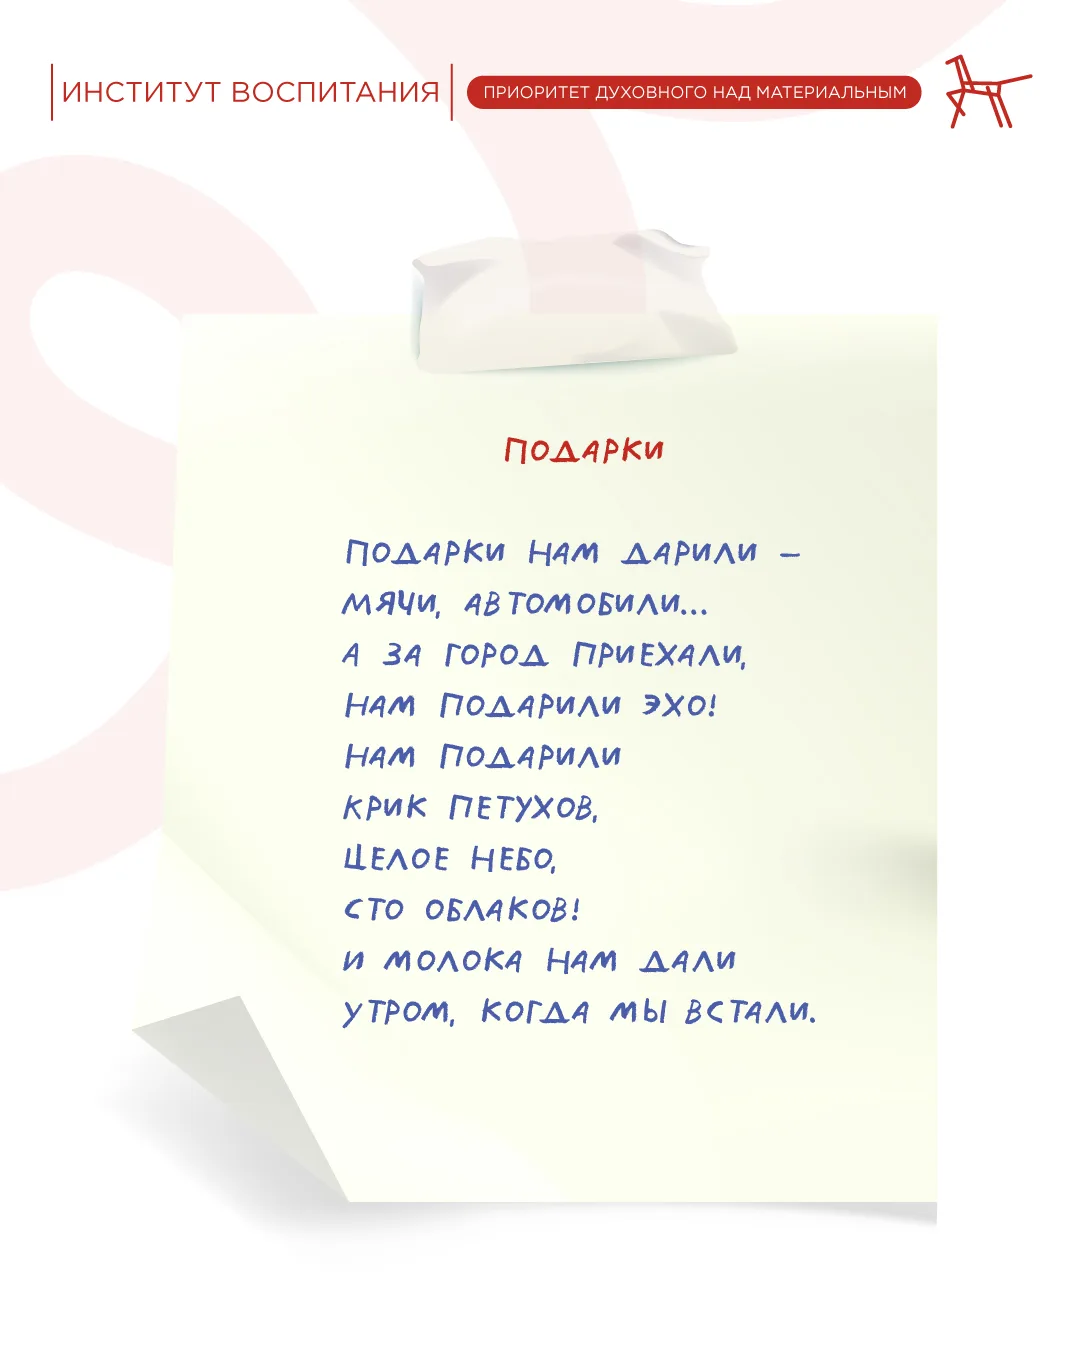 ИНСТИТУТ ВОСПИТАНИЯ
ПРИОРИТЕТ ДУХОВНОГО НАД МАТЕРИАЛЬНЫМ
ПОДАРКИ
ПОДАРКИ НАМ ДАРИЛИ –
МЯЧИ, АВТОМОБИЛИ...
А ЗА ГОРОД ПРИЕХАЛИ,
НАМ ПОДАРИЛИ ЭХО!
НАМ ПОДАРИЛИ
КРИК ПЕТУХОВ,
ЦЕЛОЕ НЕБО,
СТО ОБЛАКОВ!
И МОЛОКА НАМ ДАЛИ
УТРОМ, КОГДА МЫ ВСТАЛИ.